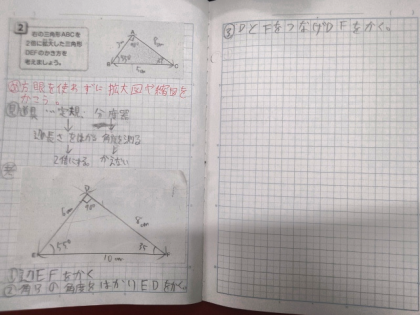 2
右の三角形ABCを
2倍に拡大した三角形
DEFのかき方を
考えましょう。
A
B
C
5cm
方眼を使わずに拡大図や縮図を
かこう。
道具…定規、分度器
長さをはかる 角度を測る
2倍にする かえない
D
6cm
8cm
55°
35
10cm
①辺EFをかく
②角Eの角度をはかりEDをかく。
③DとFをつなげDFをかく。